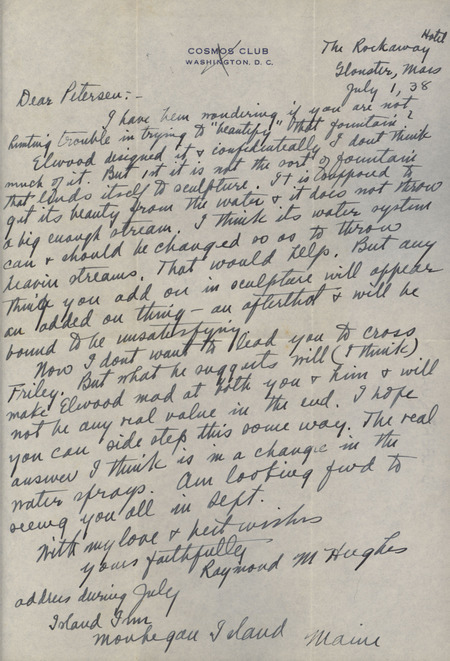 COSMOS CLUB
WASHINGTON, D. C.
The Rockaway Hotel
Gloucster, Mass
July 1, 38
Dear Petersen:-
I have been wondering if you are not
hunting trouble in trying to "beautify" that fountain?
Elwood designed it & confidentially I dont think
much of it. But 1st it is not the sort of fountain
that lends itself to sculpture. It is supposed to
get its beauty from the water & it does not throw
a big enough stream. I think its water system
can & should be changed so as to throw
heavier streams. That would help. But any
thing you add on in sculpture will appear
an added on thing - an afterthot & will be
bound to be unsatisfying.
Now I dont want to lead you to cross
Friley. But what he suggests will (I think)
make Elwood mad at both you & him & will
not be any real value in the end. I hope
you can side step this some way. The real
answer I think is in a change in the
water sprays. Am looking fwd to
seeing you all in Sept.
With my love & best wishes
yours faithfully
Raymond M Hughes
address during July
Island Inn
Monhegan Island Maine